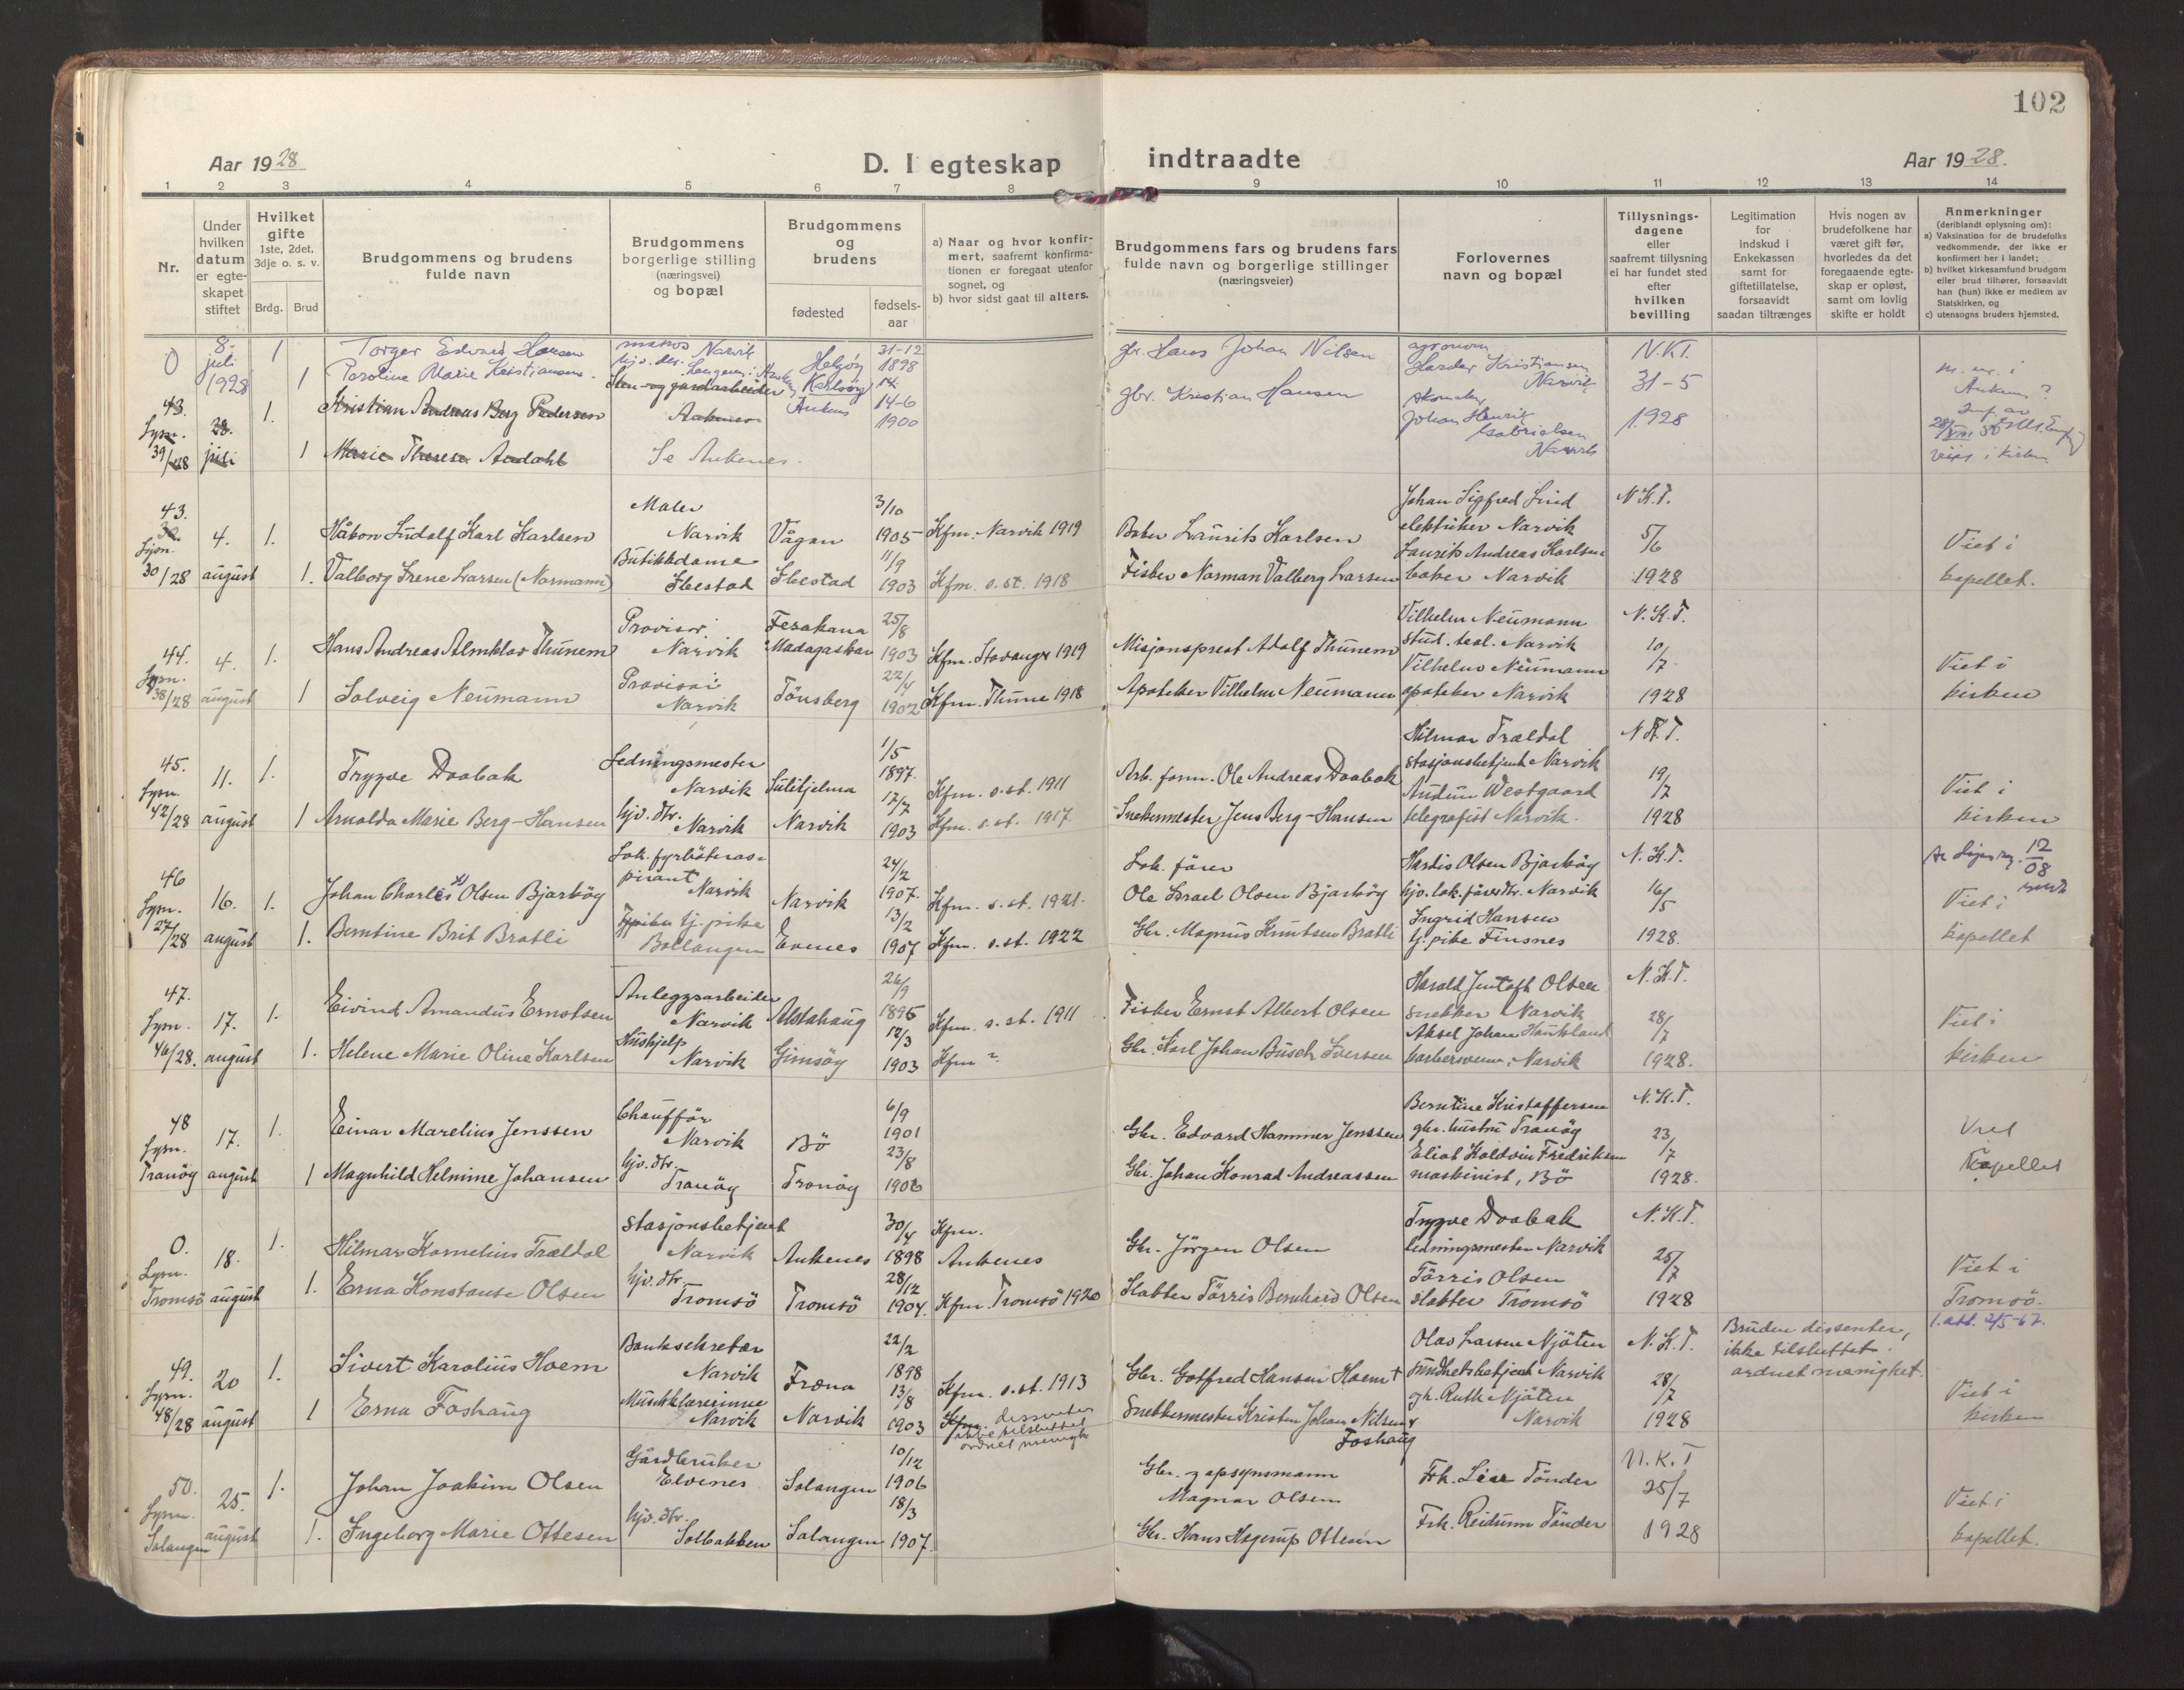 102
Aar 1928
D. I egteskap
indtraadte
Aar 1928.
1 2 3 4 5 6 7 8 9 10 11 12 13 14
Nr.
Under hvilken datum er egte- skapet stiftet
Hvilket gifte 1ste, 2det, 3dje o. s. v.
Brdg. Brud
Brudgommens og brudens fulde navn
Brudgommens borgerlige stilling (næringsvei) og bopæl
Brudgommens og brudens
fødested
fødsels- aar
a) Naar og hvor konfir- mert, saafremt konfirma- tionen er foregaat utenfor sognet, og b) hvor sidst gaat til alters.
Brudgommens fars og brudens fars fulde navn og borgerlige stillinger (næringsveier)
Forlovernes navn og bopæl
Tillysnings- dagene eller saafremt tillysning ei har fundet sted efter hvilken bevilling
Legitimation for indskud i Enkekassen samt for giftetillatelse, forsaavidt saadan tiltrænges
Hvis nogen av brudefolkene har været gift før, hvorledes da det foregaaende egte- skap er opløst, samt om lovlig skifte er holdt
Anmerkninger (deriblandt oplysning om): a) Vaksination for de brudefolks vedkommende, der ikke er konfirmert her i landet; b) hvilket kirkesamfund brudgom eller brud tilhører, forsaavidt han (hun) ikke er medlem av Statskirken, og c) utensogns bruders hjemsted.
0 8. juli 1928 1 Torger Edvard Hansen Narvik Helgøy 31-12 1898 gbr. Hans Johan Nilsen agronom Hardar Kristiansen Narvik N.KT.
1 Paroline Marie Kristiansen hjv. dtr. Ankenes 14-6 1900 gbr. Kristian Hansen Johan Henrik Gabrielsen Narvik 31-5 1928
43. Lysn. 39/28 28. juli 1. Kristian Andreas Berg Pedersen Sten-og gardarbeider Ankenes Karlsøy
1 Marie Therese Aadahl Se Ankenes.
43. Lysn. 30/28 4. august 1. Håkon Ludolf Karl Karlsen Maler Narvik Vågan 3/10 1905 Kfm. Narvik 1919 Baker Laurits Karlsen Johan Sigfred Lind elektriker Narvik N.K.T. 5/6 1928 Viet i kapellet.
1. Valborg Irene Larsen (Normann) Butikkdame Ibestad Ibestad 11/9 1903 Kfm. s. st. 1918 Fisker Norman Valberg Larsen Laurits Andreas Karlsen baker Narvik
44. Lysn. 38/28 4. august 1. Hans Andreas Almklov Thunem Provisor. Narvik Fezakana Madagaskar 25/8 1903 Kfm. Stavanger 1919 Misjonsprest Adolf Thunem Vilhelm Neumann stud. real. Narvik N.K.T. 10/7 1928 Viet i kirken
1 Solveig Neumann Provisor Narvik Tönsberg 22/4 1902 Kfm. Thime 1918 Apoteker Vilhelm Neumann Vilhelm Neumann apoteker Narvik
45. Lysn. 42/28 11. august 1. Trygve Daabak Ledningsmester Narvik Sulitjelma 1/5 1897. Kfm. s. st. 1911 Arb. form. Ole Andreas Daabak Hilmar Trældal stasjonsbetjent Narvik N.K.T. 19/7 1928 Viet i kirken
1 Arnolda Marie Berg-Hansen hjv. dtr. Narvik Narvik 17/7 1903 Kfm. s. st. 1917. Snekkermester Jens Berg-Hansen Audun Westgaard telegrafist Narvik.
46 Lysn. 27/28 16. august 1. Johan Charles Olsen Bjarköy Lok. fyrböteras- pirant Narvik Narvik 24/2 1907. Kfm. s. st. 1921. Lok. förer Ole Israel Olsen Bjarköy Hardis Olsen Bjarköy hjv. lok. förerdtr. Narvik N.K.T. 16/5 1928. Viet i kapellet
1. Berntine Brit Bratli tj. pike Ballangen Evenes 13/2 1907 Kfm. s. st. 1922 Gbr. Magnus Knutsen Bratli Ingrid Hansen tj. pike Finsnes
47. Lysn. 46/28. 17. august 1. Eivind Amandus Ernstsen Anleggsarbeider Narvik Alstahaug 26/9 1895 Kfm. s. st. 1911 Fisker Ernst Albert Olsen Harald Jentoft Olsen snekker Narvik N.K.T. 28/7 1928. Viet i kirken
1. Helene Marie Oline Karlsen Hushjelp Narvik Gimsöy 12/3 1903 Kfm ? Gbr. Karl Johan Busch Iversen Aksel Johan Haukland barbersvenn, Narvik
48 Lysn. Tranöy 17. august 1. Einar Marelius Jenssen Chaufför Narvik Bö 6/9 1901 Gbr. Edvard Hammer Jenssen Berntine Kristoffersen gbr. hustru Tranöy N.K.T. 23/7 1928. Viet Kapellet
1 Magnhild Helmine Johansen hjv. dtr. Tranöy Tranöy 23/8 1906 Gbr. Johan Konrad Andreassen Eliot Koldvin Fredriksen maskinist, Bö
0. Lysn. Tromsö 18. august 1. Hilmar Kornelius Trældal Stasjonsbetjent Narvik Ankenes 30/4 1898 Kfm. Ankenes Gbr. Jörgen Olsen Trygve Daabak ledningsmester Narvik N.K.T. 25/7 1928 Viet i Tromsö.
1. Erna Konstanse Olsen hjv. dtr. Tromsö Tromsö 28/12 1904. Kfm. Tromsö 1920 Slakter Törris Bernhard Olsen Törris Olsen slakter Tromsö
49. Lysn. 48/28 20 august 1. Sivert Karolius Hoem Banksekretær Narvik Fræna 22/2 1898 Kfm. s. st. 1913 Gbr. Gotfred Hansen Hoem † Olav Larsen Njöten sundhetsbetjent Narvik N.K.T. 28/7 1928 Bruden dissenter, ikke tilsluttet ordnet menighet. 1. att. 2/5-67. Viet i kirken
1 Erna Foshaug Musikklærerinne Narvik Narvik 13/8 1903 Kfm. dissenter ikke tilsluttet ordnet menigh. Snekkermester Kristen Johan Nilsen Foshaug gh. Ruth Njöten Narvik
50. Lysn. Salangen 25. august 1. Johan Joakim Olsen Gårdbruker Elvenes Salangen 10/12 1906 Gbr. og opsynsmann Magnar Olsen Frk. Lise Tönder N.K.T 25/7 1928 Viet i kapellet.
1. Ingeborg Marie Ottesen hjv. dtr. Solbakken Salangen 18/3 1907. Gbr. Hans Hagerup Ottesen Frk. Reidunn Tönder